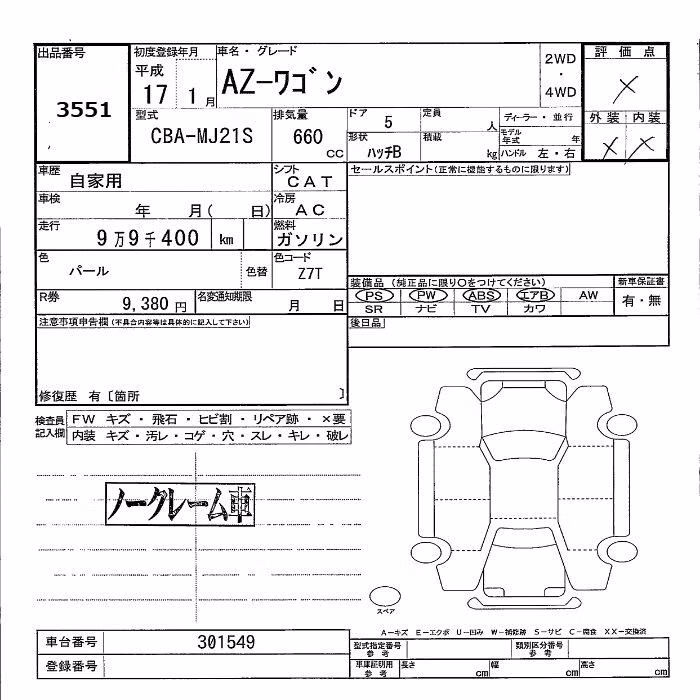 出品番号 初度登録年月 車名・グレード 2WD 評価点
3551 平成 17 1月 AZ-ワゴン ・ 4WD ×
型式 排気量 ドア 定員 ディーラー・並行 外装 内装
CBA-MJ21S 660 cc 5 人 モデル年式 年 × ×
形状 ハッチB 積載 kg ハンドル 左・右
車歴 自家用 シフト CAT セールスポイント(正常に機能するものに限ります)
車検 年 月( 日) 冷房 AC
走行 9万9千400 km 燃料 ガソリン
色 パール 色替 色コード Z7T
装備品(純正品に限り○をつけてください) 新車保証書
R券 9,380円 名変通知期限 月 日 PS PW ABS エアB AW 有・無
SR ナビ TV カワ
注意事項申告欄(不具合内容等は具体的に記入して下さい) 後日品
修復歴 有〔箇所 〕
検査員記入欄 FW キズ・飛石・ヒビ割・リペア跡・×要
内装 キズ・汚レ・コゲ・穴・スレ・キレ・破レ
ノークレーム車
スペア
A-キズ E-エクボ U-凹み W-補修跡 S-サビ C-腐食 XX-交換済
車台番号 301549 型式指定番号 参考 類別区分番号 参考
登録番号 車庫証明用 参考 長さ cm 幅 cm 高さ cm